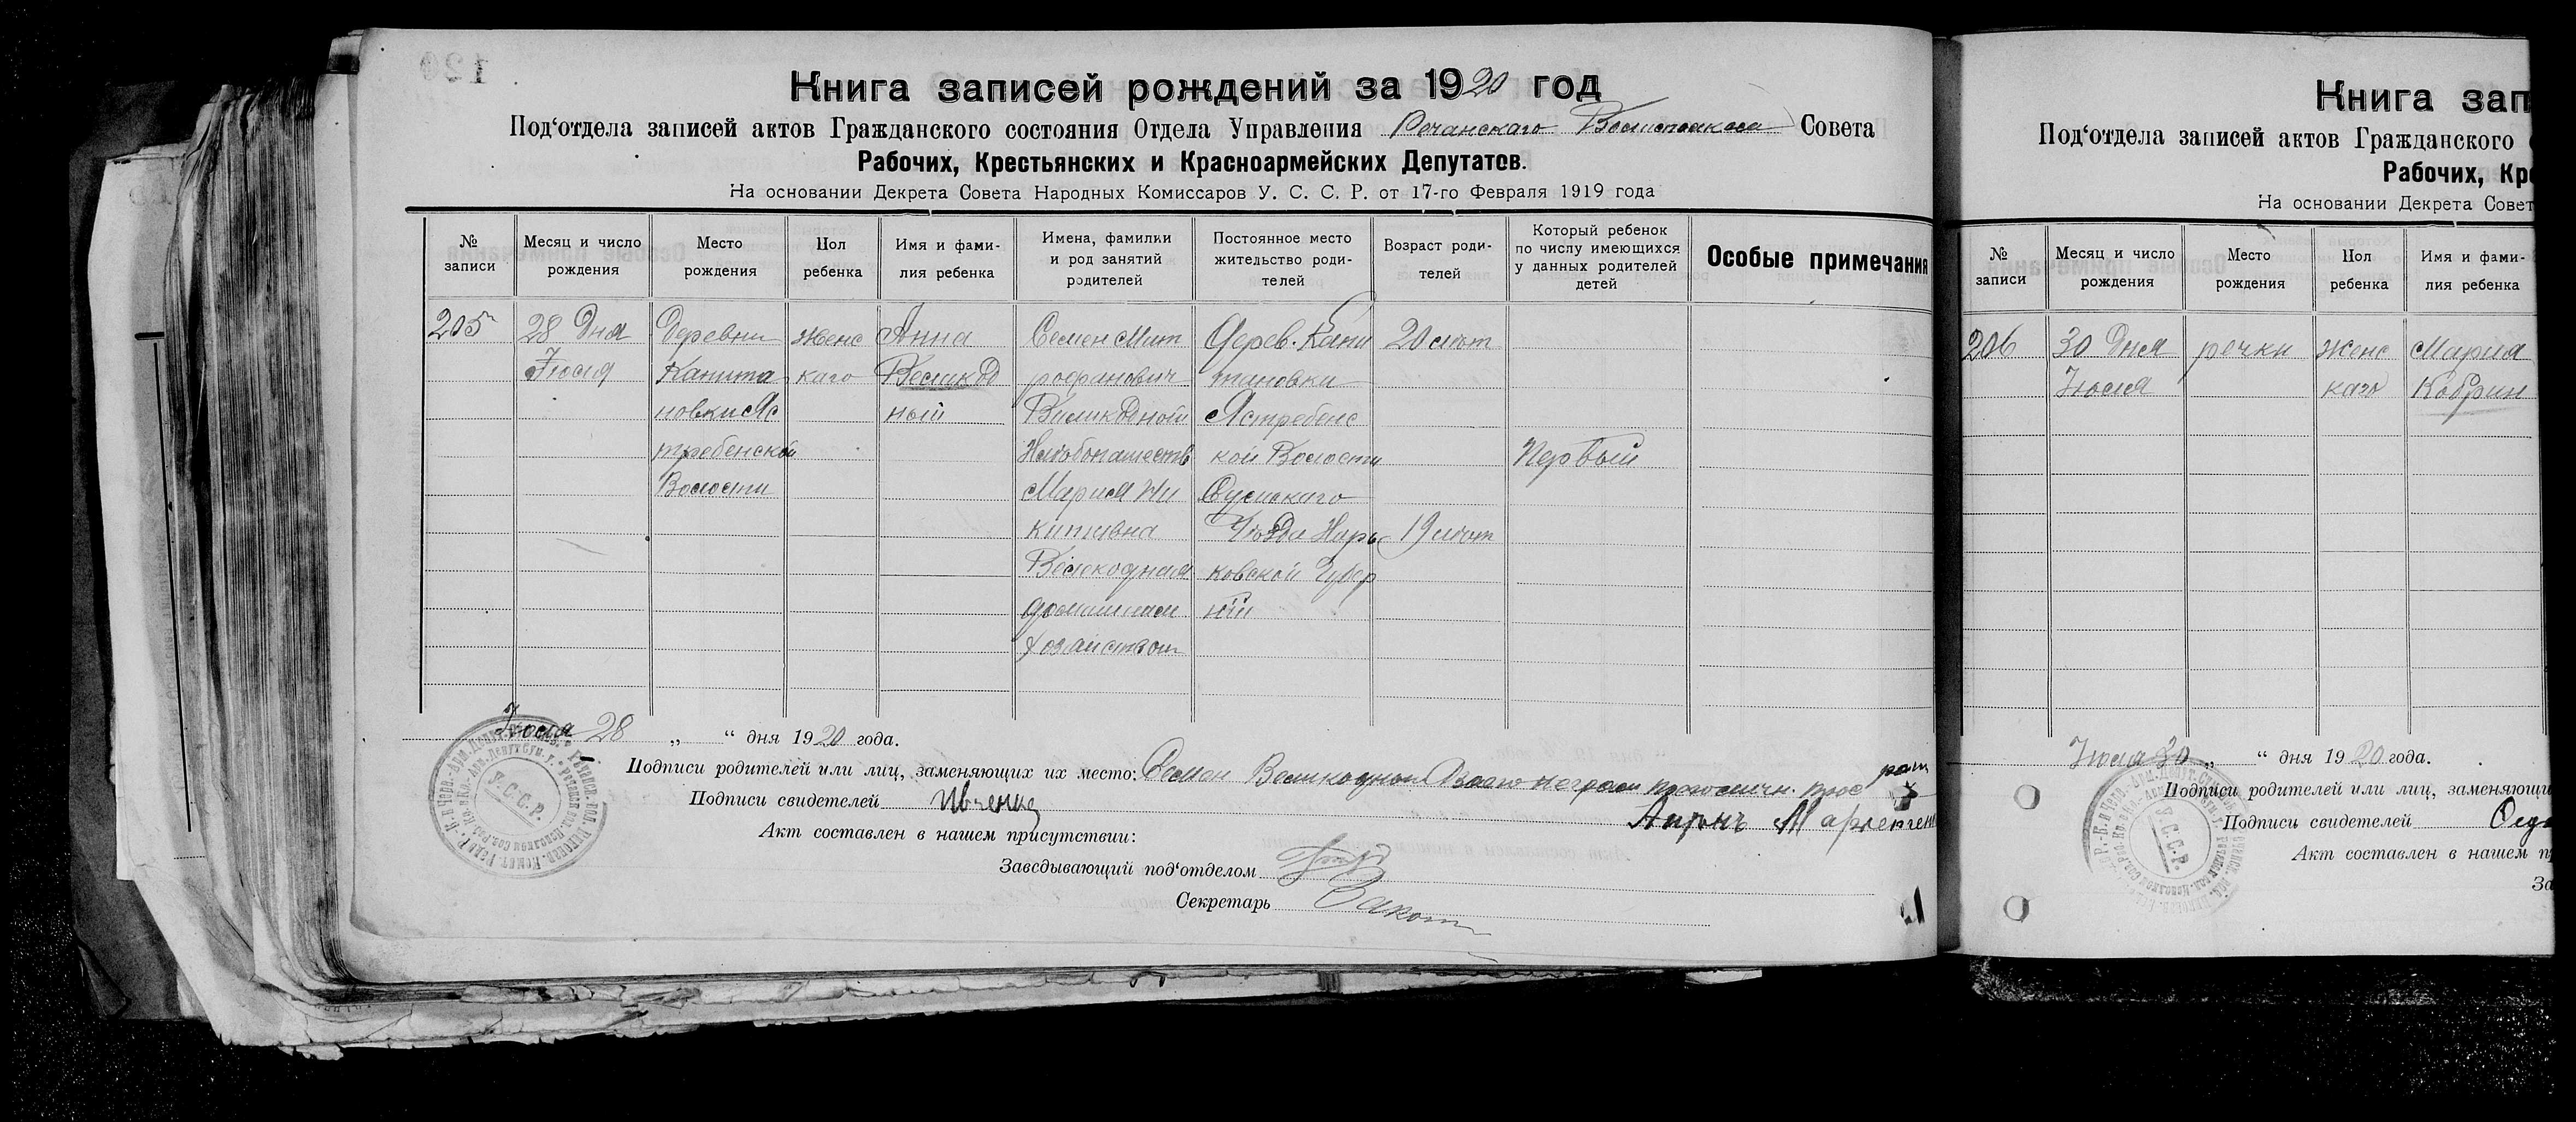 Книга записей рождений за 1920 год
Под‘отдела записей актов Гражданского состояния Отдела Управления Речанскаго Волисполкома Совета
Рабочих, Крестьянских и Красноармейских Депутатов.
На основании Декрета Совета Народных Комиссаров У. С. С. Р. от 17-го Февраля 1919 года
№ записи
Месяц и число рождения
Место рождения
Пол ребенка
Имя и фами-
лия ребенка
Имена, фамилии
и род занятий
родителей
Постоянное место
жительство роди-
телей
Возраст роди-
телей
Который ребенок
по числу имеющихся
у данных родителей
детей
Особые примечания
205
28 Дня
Июля
Деревни
Капита
новки Яс
требенской
Волости
женс
каго
Анна
Великод
ный
Семен Мит
рофанович
Великодной
Хлебопашеств
Мария Ни
китивна
Великодная
домашним
хозайством
Дерев. Капи
тановки
Ястребенс
кой Волости
Сумскаго
Уезда Харь
ковской Губер
нiи
20 лет
19 лет
Первый
Июля 28 „ “ дня 1920 года.
Подписи родителей или лиц, заменяющих их место: Семен Великодный
Подписи свидетелей Ивченко
Акт составлен в нашем присутствии:
Заведывающий под‘отделом
Секретарь
Книга зап
Под‘отдела записей актов Гражданского
Рабочих, Кре
На основании Декрета Совет
№ записи
Месяц и число рождения
Место рождения
Пол ребенка
Имя и фами-
лия ребенка
206
30 Дня
Июля
речки
женс
каго
Мария
Кобрин
Июля 30 „ “ дня 1920 года.
Подписи родителей или лиц, заменяющи
Подписи свидетелей
Акт составлен в нашем п
За